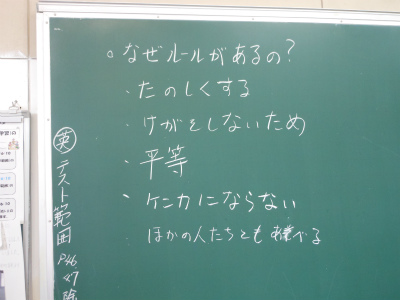 ○なぜルールがあるの?
・たのしくする
・けがをしないため
・平等
・ケンカにならない
・ほかの人たちとも
英 テスト範囲 P46 47